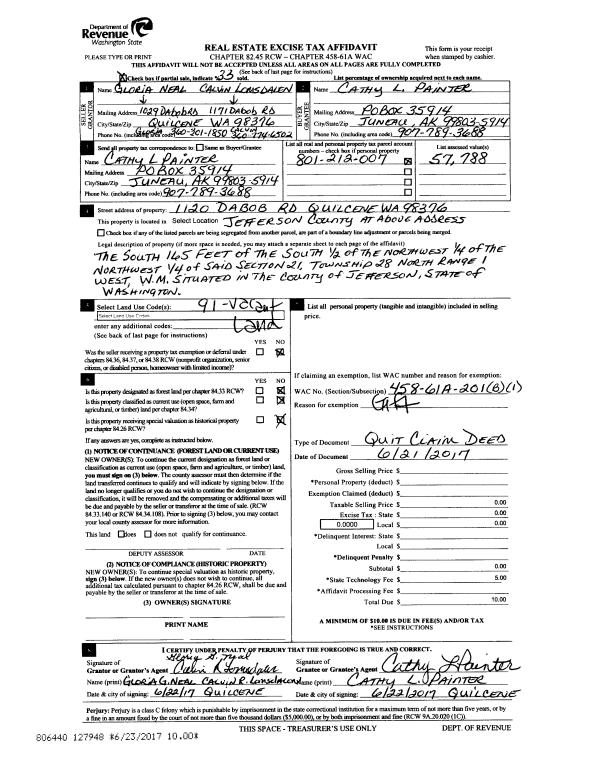 Department of
Revenue
Washington State
REAL ESTATE EXCISE TAX AFFIDAVIT
This form is your receipt
PLEASE TYPE OR PRINT
CHAPTER 82.45 RCW – CHAPTER 458-61A WAC
when stamped by cashier.
THIS AFFIDAVIT WILL NOT BE ACCEPTED UNLESS ALL AREAS ON ALL PAGES ARE FULLY COMPLETED
(See back of last page for instructions)
Check box if partial sale, indicate % 33 sold.
List percentage of ownership acquired next to each name.
Name GLORIA NEAL CALVIN LONSDALEN
Name CATHY L. PAINTER
SELLER GRANTOR
BUYER GRANTEE
Mailing Address 1029 DABOB RD 1171 DABOB RD
Mailing Address PO BOX 35914
City/State/Zip QUILCENE WA 98376
City/State/Zip JUNEAU, AK 99803-5914
Phone No. (including area code) GLORIA 360-301-1850 CALVIN 360-774-6502
Phone No. (including area code) 907-789-3688
Send all property tax correspondence to: Same as Buyer/Grantee
List all real and personal property tax parcel account numbers – check box if personal property
List assessed value(s)
Name CATHY L PAINTER
801-212-007
57,788
Mailing Address PO BOX 35914
City/State/Zip JUNEAU, AK 99803-5914
Phone No. (including area code) 907-789-3688
Street address of property: 1120 DABOB RD QUILCENE WA 98376
This property is located in Select Location JEFFERSON COUNTY AT ABOVE ADDRESS
Check box if any of the listed parcels are being segregated from another parcel, are part of a boundary line adjustment or parcels being merged.
Legal description of property (if more space is needed, you may attach a separate sheet to each page of the affidavit)
THE SOUTH 165 FEET OF THE SOUTH 1/2 OF THE NORTHWEST 1/4 OF THE
NORTHWEST 1/4 OF SAID SECTION 21, TOWNSHIP 28 NORTH RANGE 1
WEST, W.M. SITUATED IN THE COUNTY OF JEFFERSON, STATE OF
WASHINGTON.
Select Land Use Code(s): 91-Vacant
Select Land Use Codes
Land
enter any additional codes:
(See back of last page for instructions)
YES NO
Was the seller receiving a property tax exemption or deferral under
chapters 84.36, 84.37, or 84.38 RCW (nonprofit organization, senior
citizen, or disabled person, homeowner with limited income)?
YES NO
Is this property designated as forest land per chapter 84.33 RCW?
Is this property classified as current use (open space, farm and
agricultural, or timber) land per chapter 84.34?
Is this property receiving special valuation as historical property
per chapter 84.26 RCW?
If any answers are yes, complete as instructed below.
(1) NOTICE OF CONTINUANCE (FOREST LAND OR CURRENT USE)
NEW OWNER(S): To continue the current designation as forest land or
classification as current use (open space, farm and agriculture, or timber) land,
you must sign on (3) below. The county assessor must then determine if the
land transferred continues to qualify and will indicate by signing below. If the
land no longer qualifies or you do not wish to continue the designation or
classification, it will be removed and the compensating or additional taxes will
be due and payable by the seller or transferor at the time of sale. (RCW
84.33.140 or RCW 84.34.108). Prior to signing (3) below, you may contact
your local county assessor for more information.
This land does does not qualify for continuance.
DEPUTY ASSESSOR DATE
(2) NOTICE OF COMPLIANCE (HISTORIC PROPERTY)
NEW OWNER(S): To continue special valuation as historic property,
sign (3) below. If the new owner(s) does not wish to continue, all
additional tax calculated pursuant to chapter 84.26 RCW, shall be due and
payable by the seller or transferor at the time of sale.
(3) OWNER(S) SIGNATURE
PRINT NAME
List all personal property (tangible and intangible) included in selling
price.
If claiming an exemption, list WAC number and reason for exemption:
WAC No. (Section/Subsection) 458-61A-201(B)(1)
Reason for exemption
Gift
Type of Document QUIT CLAIM DEED
Date of Document 6/21/2017
Gross Selling Price $
*Personal Property (deduct) $
Exemption Claimed (deduct) $
Taxable Selling Price $ 0.00
Excise Tax : State $ 0.00
0.0000 Local $ 0.00
*Delinquent Interest: State $
Local $
*Delinquent Penalty $
Subtotal $ 0.00
*State Technology Fee $ 5.00
*Affidavit Processing Fee $
Total Due $ 10.00
A MINIMUM OF $10.00 IS DUE IN FEE(S) AND/OR TAX
*SEE INSTRUCTIONS
I CERTIFY UNDER PENALTY OF PERJURY THAT THE FOREGOING IS TRUE AND CORRECT.
Signature of
Grantor or Grantor's Agent Calvin R Lonsdalen
Signature of
Grantee or Grantee's Agent Cathy L Painter
Name (print) GLORIA G. NEAL CALVIN R. Lonsdalen
Name (print) CATHY L. PAINTER
Date & city of signing: 6/22/17 QUILCENE
Date & city of signing: 6/22/2017 QUILCENE
Perjury: Perjury is a class C felony which is punishable by imprisonment in the state correctional institution for a maximum term of not more than five years, or by
a fine in an amount fixed by the court of not more than five thousand dollars ($5,000.00), or by both imprisonment and fine (RCW 9A.20.020 (1C)).
THIS SPACE - TREASURER'S USE ONLY
DEPT. OF REVENUE
806440 127948 *6/23/2017 10.00*